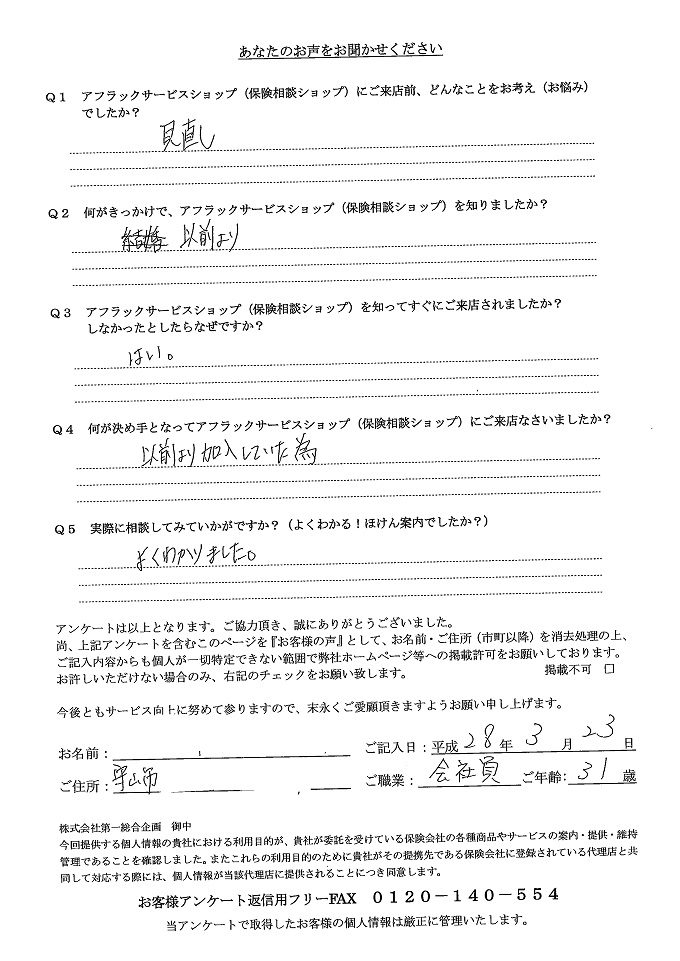 あなたのお声をお聞かせください
Q1 アフラックサービスショップ（保険相談ショップ）にご来店前、どんなことをお考え（お悩み）
でしたか？
見直し
Q2 何がきっかけで、アフラックサービスショップ（保険相談ショップ）を知りましたか？
結婚 以前より
Q3 アフラックサービスショップ（保険相談ショップ）を知ってすぐにご来店されましたか？
しなかったとしたらなぜですか？
はい。
Q4 何が決め手となってアフラックサービスショップ（保険相談ショップ）にご来店なさいましたか？
以前より加入していた為
Q5 実際に相談してみていかがですか？（よくわかる！ほけん案内でしたか？）
よくわかりました。
アンケートは以上となります。ご協力頂き、誠にありがとうございました。
尚、上記アンケートを含むこのページを『お客様の声』として、お名前・ご住所（市町以降）を消去処理の上、
ご記入内容からも個人が一切特定できない範囲で弊社ホームページ等への掲載許可をお願いしております。
お許しいただけない場合のみ、右記のチェックをお願い致します。 掲載不可 □
今後ともサービス向上に努めて参りますので、末永くご愛顧頂きますようお願い申し上げます。
お名前： ご記入日：平成 28 年 3 月 23 日
ご住所：守山市 ご職業：会社員 ご年齢：31 歳
株式会社第一総合企画 御中
今回提供する個人情報の貴社における利用目的が、貴社が委託を受けている保険会社の各種商品やサービスの案内・提供・維持
管理であることを確認しました。またこれらの利用目的のために貴社がその提携先である保険会社に登録されている代理店と共
同して対応する際には、個人情報が当該代理店に提供されることにつき同意します。
お客様アンケート返信用フリーFAX 0120－140－554
当アンケートで取得したお客様の個人情報は厳正に管理いたします。